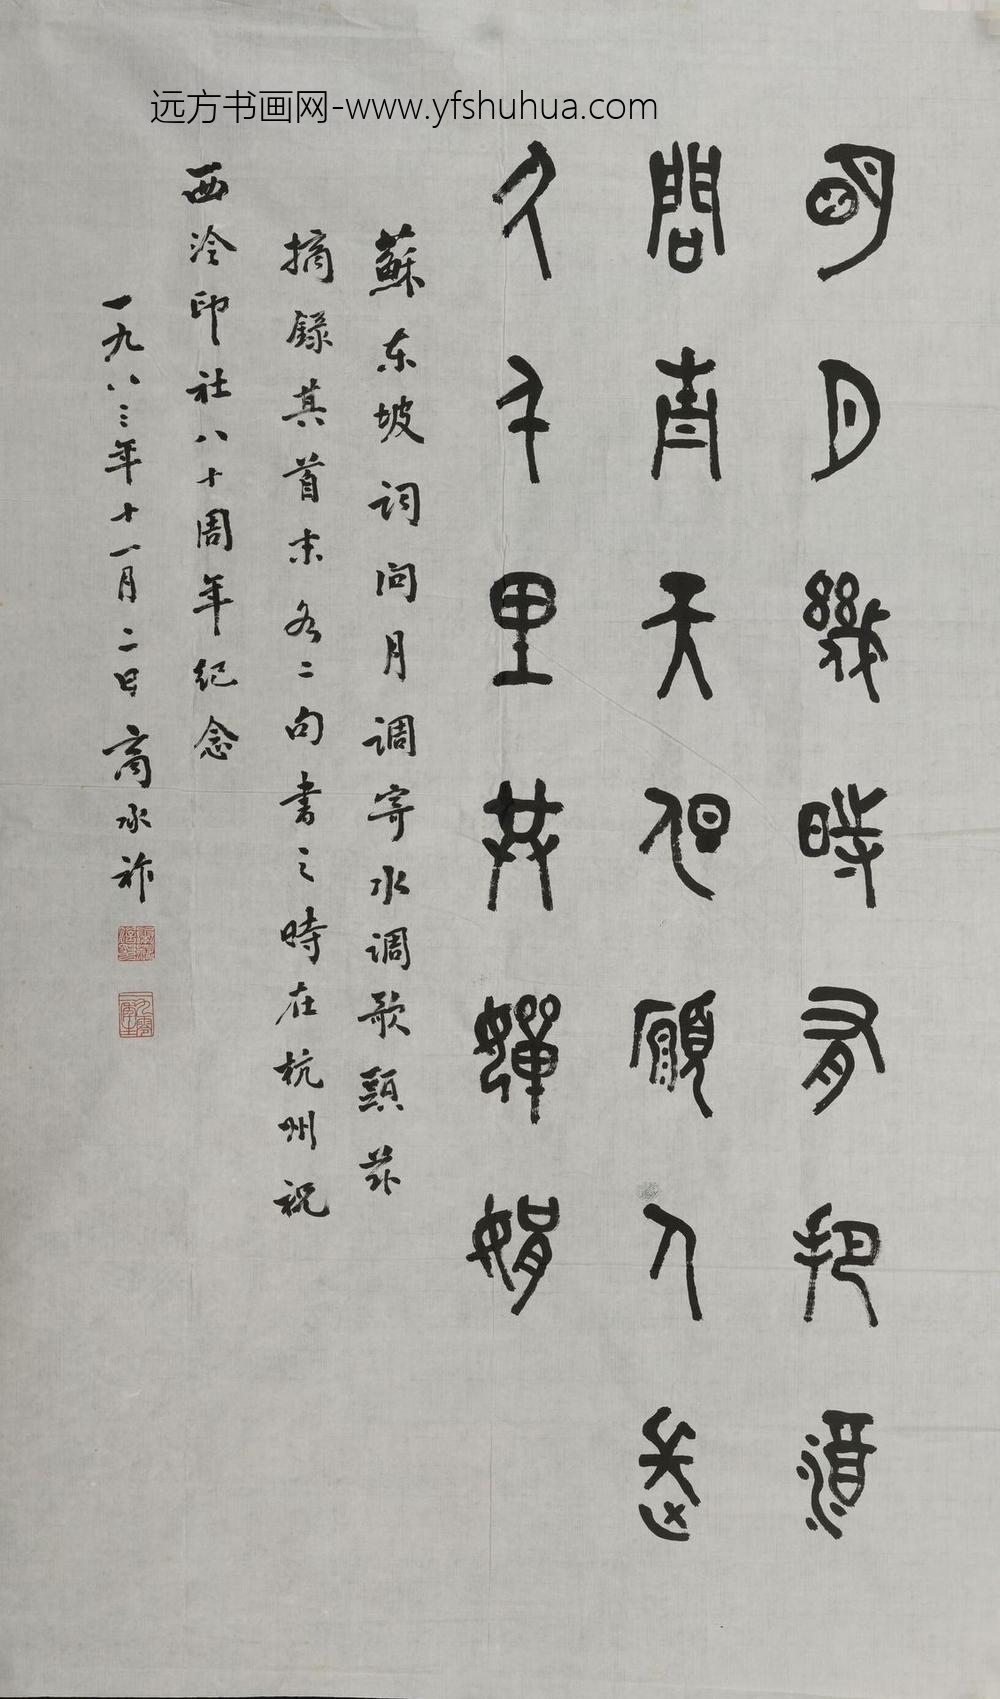 远方书画网-www.yfshuhua.com
明月幾時有把酒
問青天但願人長
久千里共嬋娟
蘇东坡词问月调寄水调歌頭兹
摘錄其首末各二句書之時在杭州祝
西泠印社八十周年纪念
一九八三年十一月二日商承祚